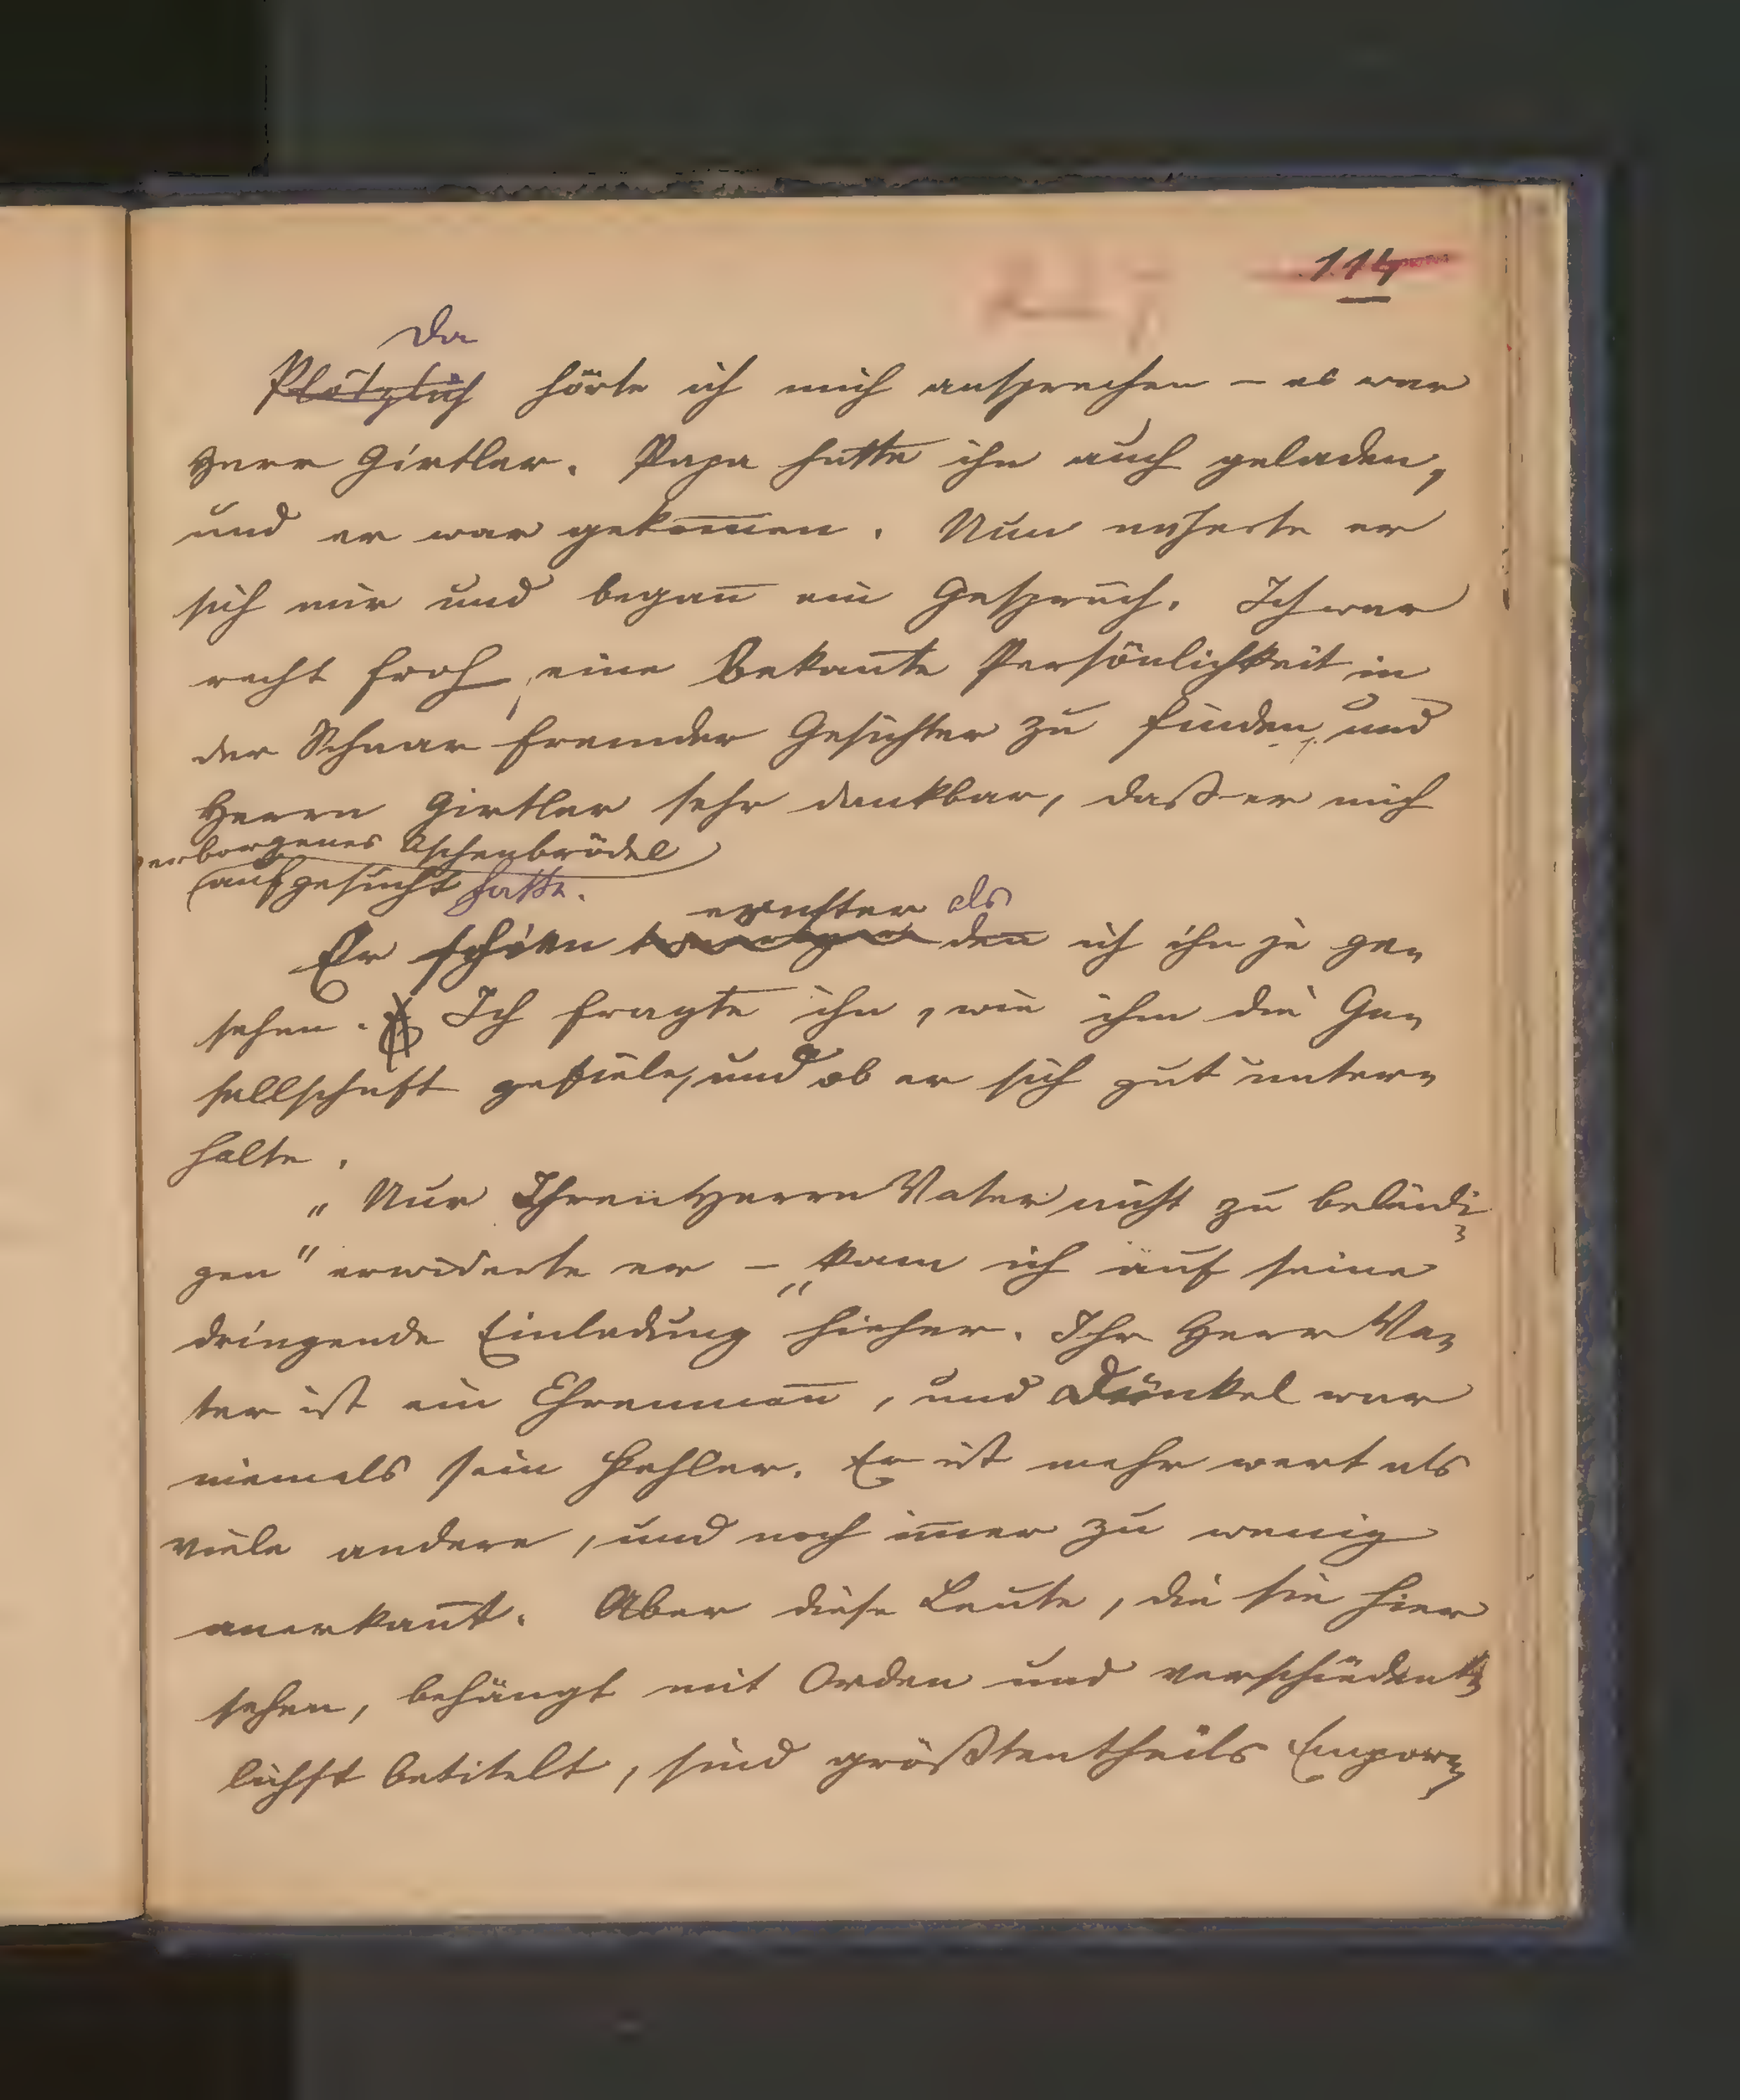 114
Da
Plötzlich hörte ich mich ansprechen – es war
Herr Girtler. Papa hatte ihn auch geladen,
und er war gekom̅en. Nun näherte er
sich mir und began̅ ein Gespräch. Ich war
recht froh, eine Bekan̅te Persönlichkeit in
der Schaar fremder Gesichter zu finden, und
Herrn Girtler sehr dankbar, daß er mich
verborgenes Aschenbrödel
aufgesucht hatte.
ernster als
Er schien den ich ihn je ge-
sehen. Ich fragte ihn, wie ihm die Ge-
sellschaft gefiele, und ob er sich gut unter-
halte.
„Nur Ihren Herrn Vater nicht zu beleidi-
gen“ erwiderte er – „kam ich auf seine
dringende Einladung hieher. Ihr Herr Va-
ter ist ein Ehrenman̅, und Dünkel war
niemals sein Fehler. Er ist mehr wert als
viele andere, und noch im̅er zu wenig
anerkan̅t. Aber diese Leute, die sie hier
sehen, behängt mit Orden und verschiedent-
lichst betitelt, sind größtentheils Empor-